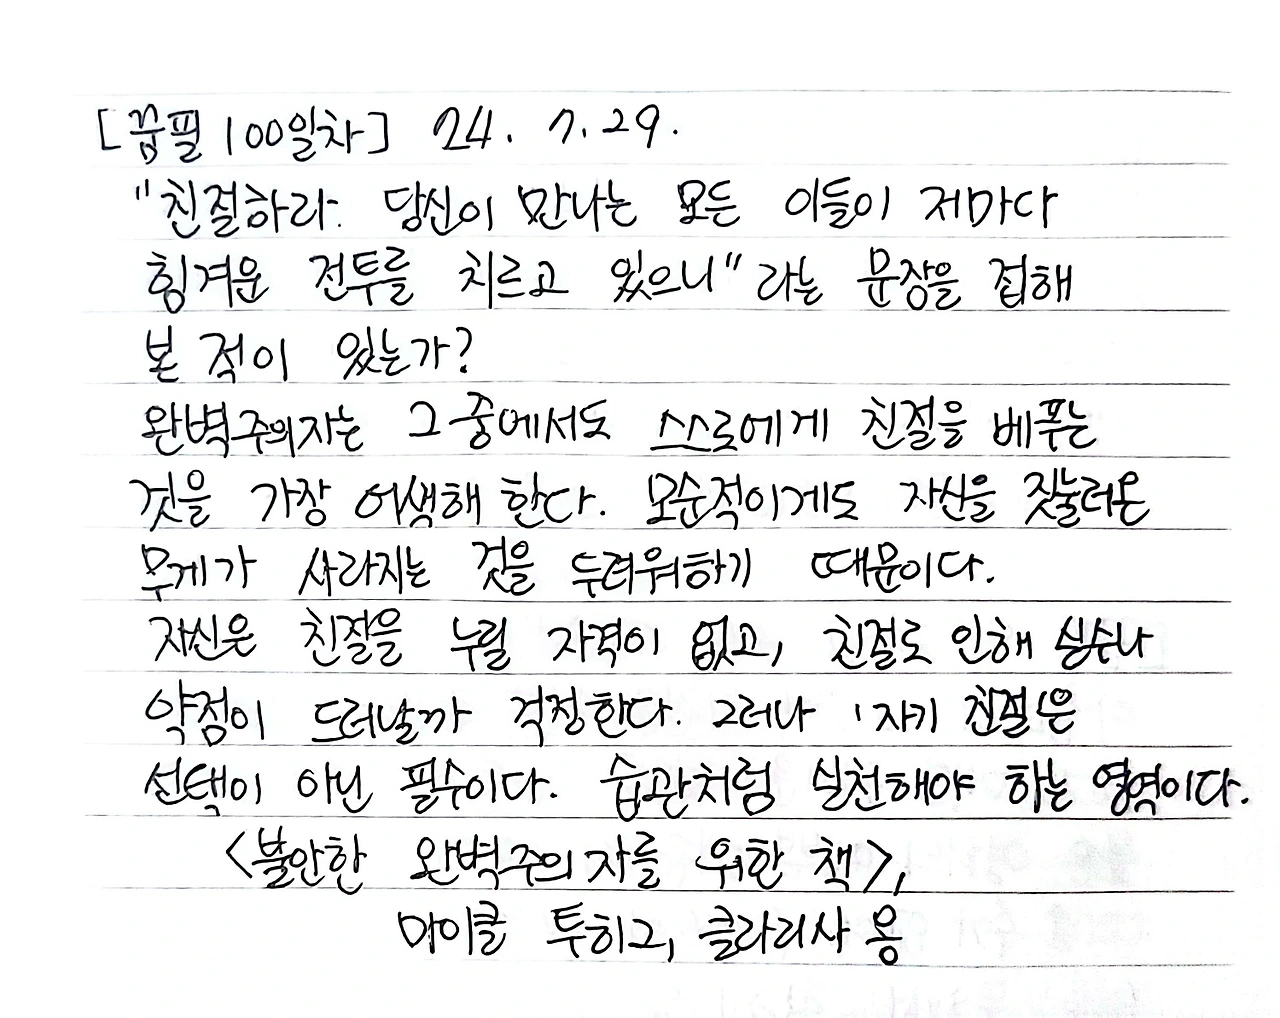 [꿉필 100일차] 24. 7. 29.
"친절하라. 당신이 만나는 모든 이들이 저마다
힘겨운 전투를 치르고 있으니" 라는 문장을 접해
본 적이 있는가?
완벽주의자는 그 중에서도 스스로에게 친절을 베푸는
것을 가장 어색해 한다. 모순적이게도 자신을 짓눌러온
무게가 사라지는 것을 두려워하기 때문이다.
자신은 친절을 누릴 자격이 없고, 친절로 인해 실수나
약점이 드러날까 걱정한다. 그러나 '자기 친절'은
선택이 아닌 필수이다. 습관처럼 실천해야 하는 영역이다.
<불안한 완벽주의자를 위한 책>,
마이클 투히그, 클라리사 옹